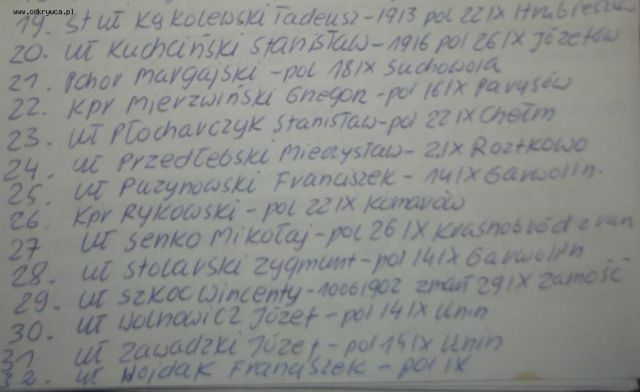 www.odkrywca.pl
19. St uł Kąkolewski Tadeusz - 1913 pol 22 IX Hrubieszów
20. uł Kuchciński Stanisław - 1916 pol 26 IX Józefów
21. Pchor Margajski - pol 18 IX Suchowola
22. Kpr Mierzwiński Gregor - pol 16 IX Parysów
23. uł Płocharczyk Stanisław - pol 22 IX Chełm
24. uł Przedłebski Mieczysław - 2.IX Roztkowo
25. uł Puzynowski Franciszek - 14 IX Garwolin.
26. Kpr Rykowski - pol 22 IX Komarów
27 uł Senko Mikołaj - pol 26 IX Krasnobród z ran
28. uł Stolarski Zygmunt - pol 14 IX Garwolin
29. uł Szkoc Wincenty - 10061902 zmarł 29 IX Zamość
30. uł Wolnowicz Józef - pol 14 IX Unin
31 uł Zawadzki Józef - pol 14 IX Unin
32. uł Wojdak Franciszek - pol IX